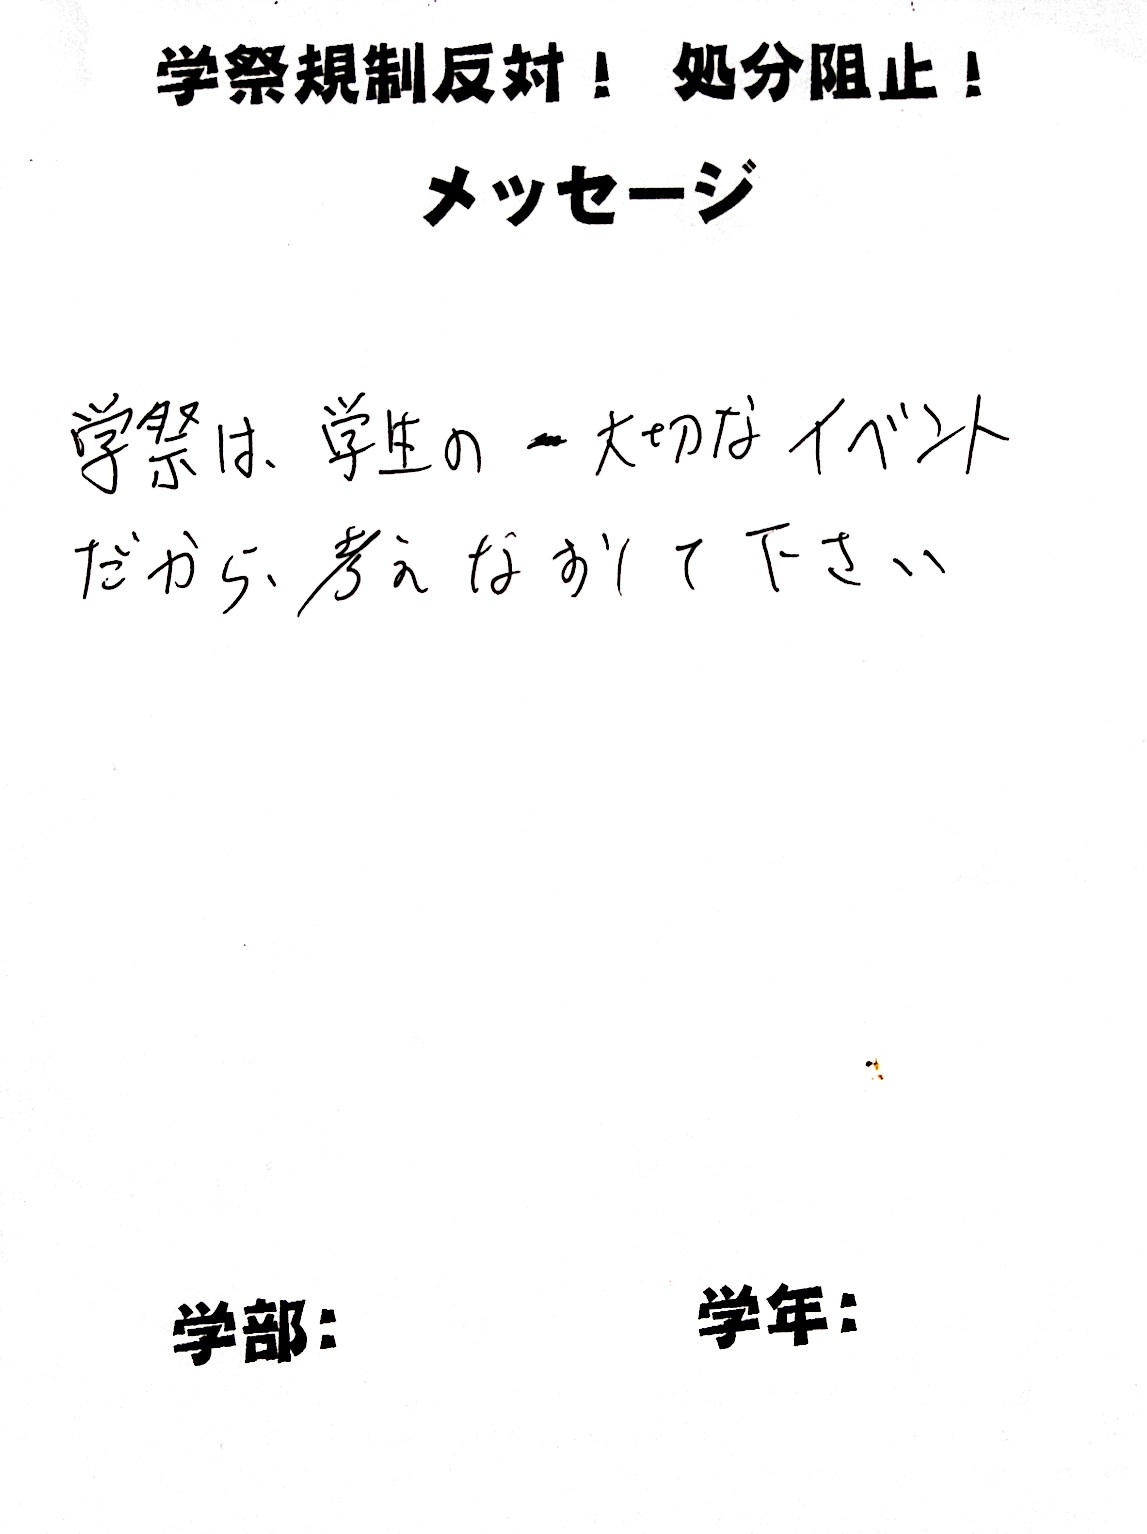 学祭規制反対！ 処分阻止！
メッセージ
学祭は、学生の 大切なイベント
だから、考えなおして下さい
学部：
学年：